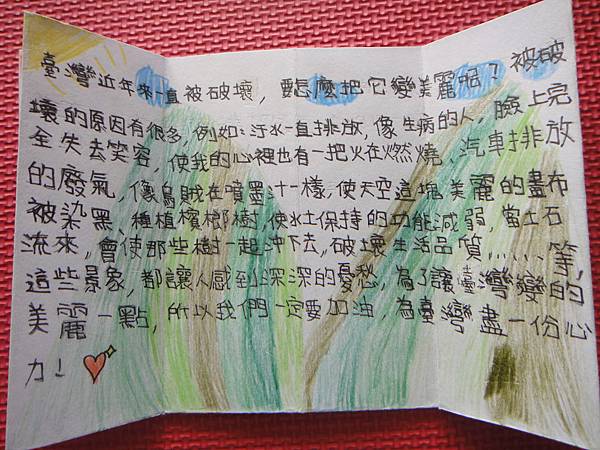 臺灣近年來一直被破壞，要怎麼把它變美麗呢？被破
壞的原因有很多，例如：汙水一直排放，像生病的人，臉上完
全失去笑容，使我的心裡也有一把火在燃燒、汽車排放
的廢氣，像烏賊在噴墨汁一樣，使天空這塊美麗的畫布
被染黑、種植檳榔樹，使水土保持的功能減弱，當土石
流來，會使那些樹一起沖下去，破壞生活品質……等，
這些景象，都讓人感到深深的憂愁，為了讓臺灣變的
美麗一點，所以我們一定要加油，為臺灣盡一份心
力！